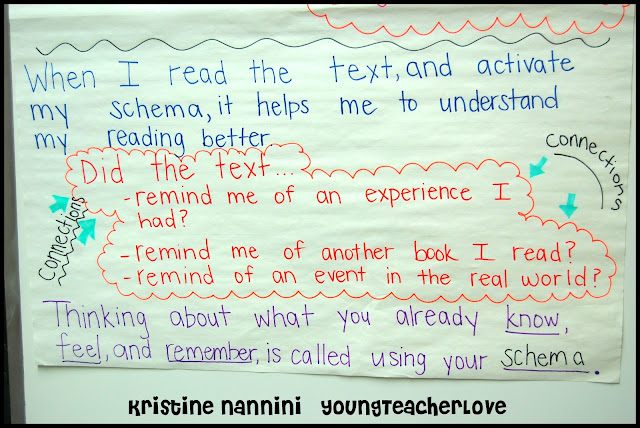 When I read the text, and activate
my schema, it helps me to understand
my reading better.
Connections
Did the text...
- remind me of an experience I
had?
- remind me of another book I read?
- remind of an event in the real world?
Connections
Thinking about what you already know,
feel, and remember, is called using your schema.
Kristine Nannini YoungTeacherLove